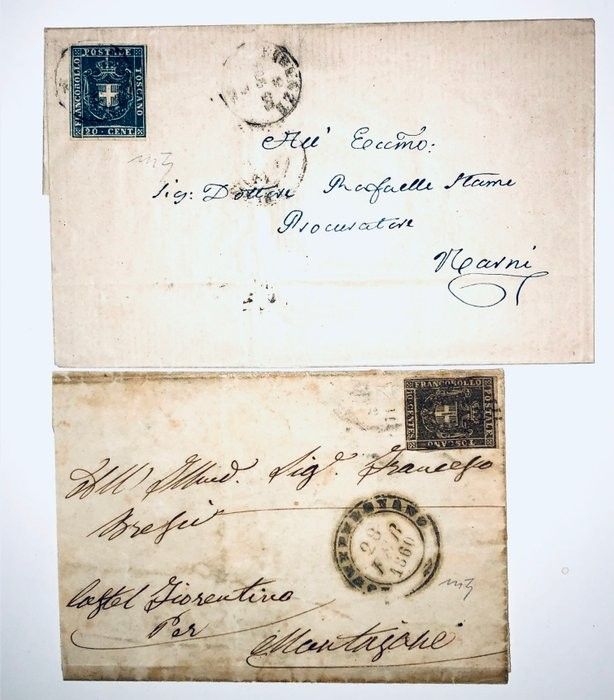 FRANCOBOLLO
POSTALE
TOSCANO
20 - CENT.
FIRENZE
All' Eccmo:
Sig: Dottore Raffaelle Stame
Procuratore
Narni
FRANCOBOLLO
POSTALE
TOSCANO
10-CENTES
All' Illmd. Sig. Francesco
Castel Fiorentino
Per
Montajone
28
FEB
1860